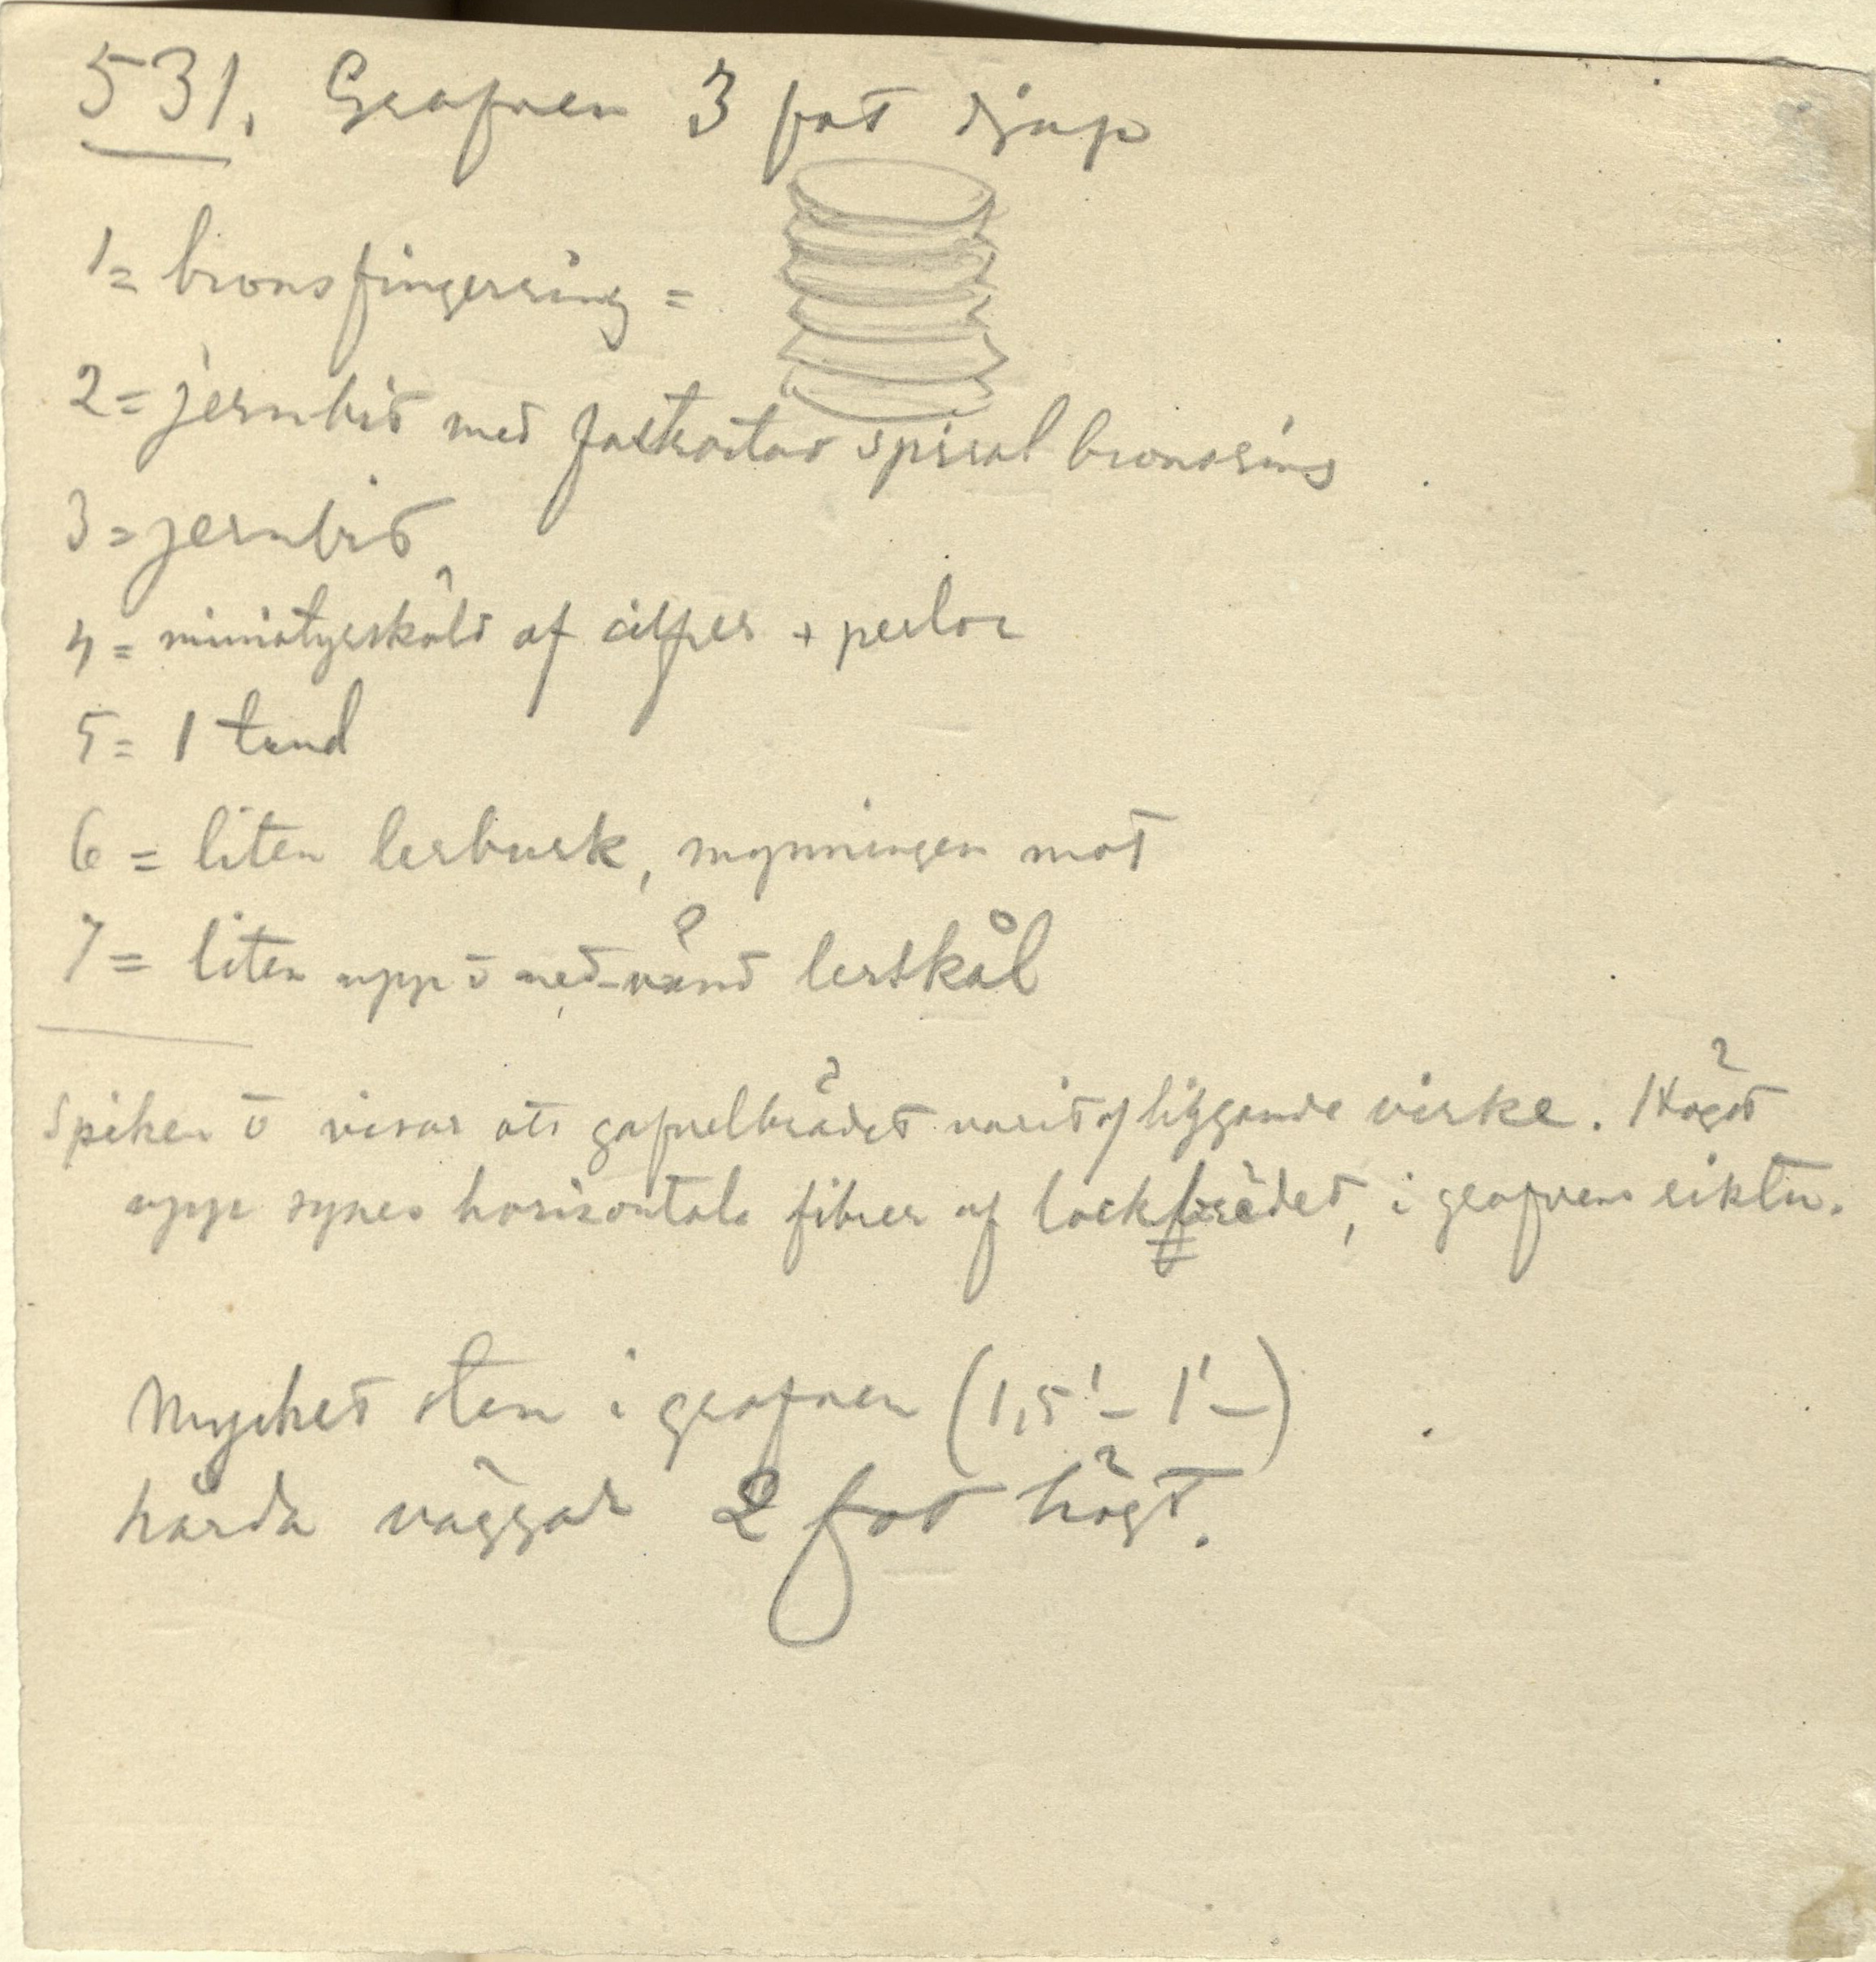 531. Grafven 3 fot djup
1 = bronsfingerring =
2 = jernbit med fastrostad spiral bronsring
3 = jernbit
4 = miniatyrsköld af silfver + perlor
5 = 1 tand
6 = liten lerburk, mynningen mot
7 = liten upp o ned-vänd lerskål
Spiken ō visar att gafvelbrädet varit af liggande virke. Högst
upp synes horisontala fibrer af lockbrädet, i grafvens riktn.
Mycket sten i grafven (1,5' – 1' –)
hårda väggar 2 fot högt.